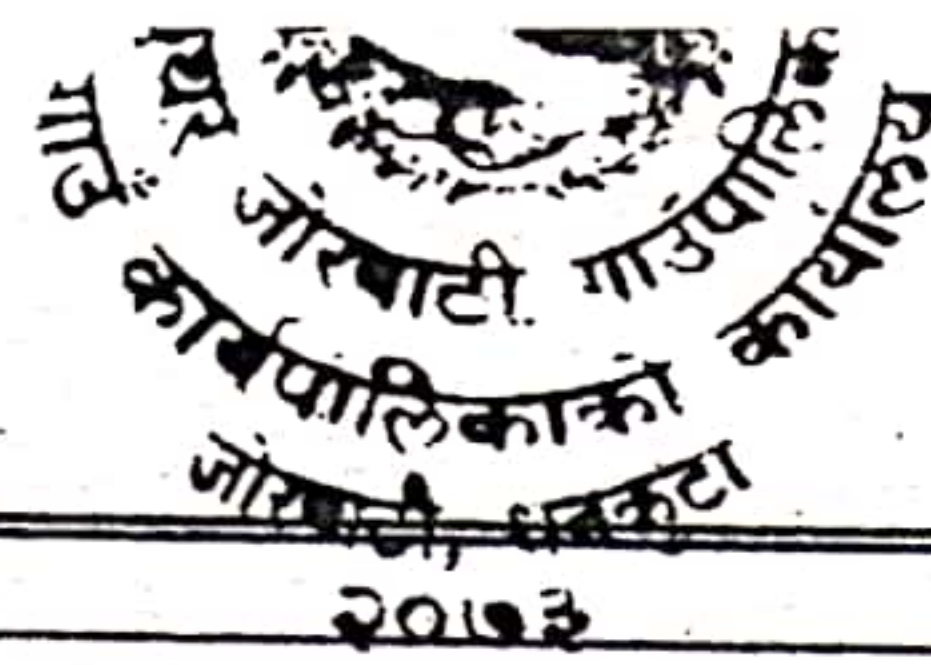 छथर जोरपाटी गाउँपालिका
गाउँ कार्यपालिकाको कार्यालय
जोरपाटी, धनकुटा
२०७३